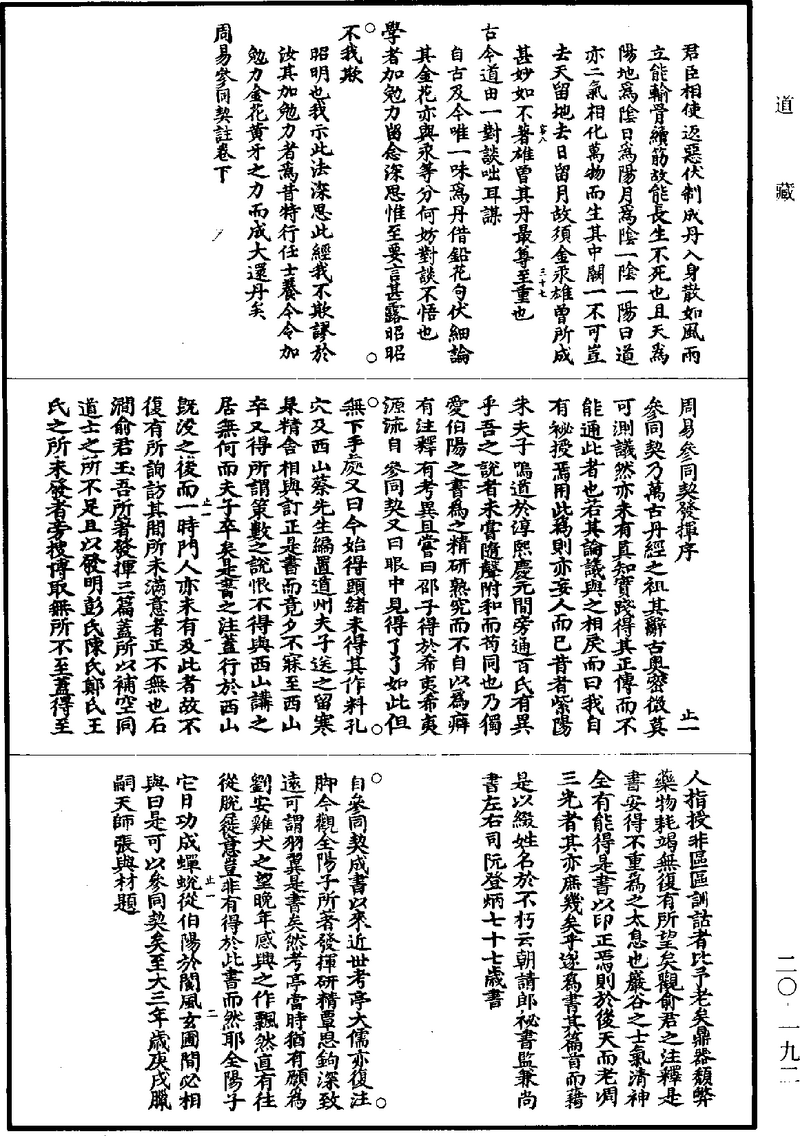 道藏
君臣相使返惡伏制成丹入身散如風雨
立能輸骨續筋故能長生不死也且天爲
陽地爲陰日爲陽月爲陰一陰一陽曰道
亦二氣相化萬物而生其中闕一不可豈
去天留地去日留月故須金汞雄曾所成
甚妙如不著雄曾其丹最尊至重也
三十七
古今道由一對談吐耳謀
自古及今唯一味爲丹借鉛花句伏細論
其金花亦與汞等分何妨對談不悟也
學者加勉力留念深思惟至要言甚露昭昭
不我欺
昭明也我示此法深思此經我不欺謬於
汝其加勉力者焉昔特行任士養今令加
勉力金花黃牙之力而成大還丹矣
周易參同契註卷下
周易參同契發揮序
止一
參同契乃萬古丹經之祖其辭古奥密微莫
可測議然亦未有真知實踐得其正傳而不
能通此者也若其論議與之相戾而曰我自
有秘授焉用此爲則亦妄人而已昔者紫陽
朱夫子鳴道於淳熙慶元間旁通百氏有異
乎吾之說者未嘗隨聲附和而苟同也乃獨
愛伯陽之書爲之精研熟究而不自以爲癖
有注釋有考異且嘗曰邵子得於希夷希夷
源流自參同契又曰眼中見得了了如此但
無下手處又曰今始得頭緒未得其作料孔
穴及西山蔡先生編置道州夫子送之留寒
泉精舍相與訂正是書而竟夕不寐至西山
卒又得所謂策數之說恨不得與西山講之
居無何而夫子卒矣是書之注蓋行於西山
既没之後而一時門人亦未有及此者故不
止一
復有所詢訪其間所未滿意者正不無也石
澗俞君玉吾所著發揮三篇蓋所以補空同
道士之所不足且以發明彭氏陳氏鄭氏王
氏之所未發者旁搜博取無所不至蓋得至
人指授非區區訓詁者比予老矣鼎器頹弊
藥物耗竭無復有所望矣觀俞君之注釋是
書安得不重爲之太息也巖谷之士氣清神
全有能得是書以印正焉則於後天而老凋
三光者其亦庶幾矣乎遂爲書其篇首而藉
是以綴姓名於不朽云朝請郎祕書監兼尚
書左右司阮登炳七十七歲書
自參同契成書以來近世考亭大儒亦復注
脚今觀全陽子所著發揮研精覃思鉤深致
遠可謂羽翼是書矣然考亭當時猶有願爲
劉安雞犬之望晚年感興之作飄然直有往
從脫屣意豈非有得於此書而然耶全陽子
止一
二
它日功成蟬蛻從伯陽於閬風玄圃間必相
與曰是可以參同契矣至大三年歲庚戌臘
嗣天師張與材題
二〇·一九二